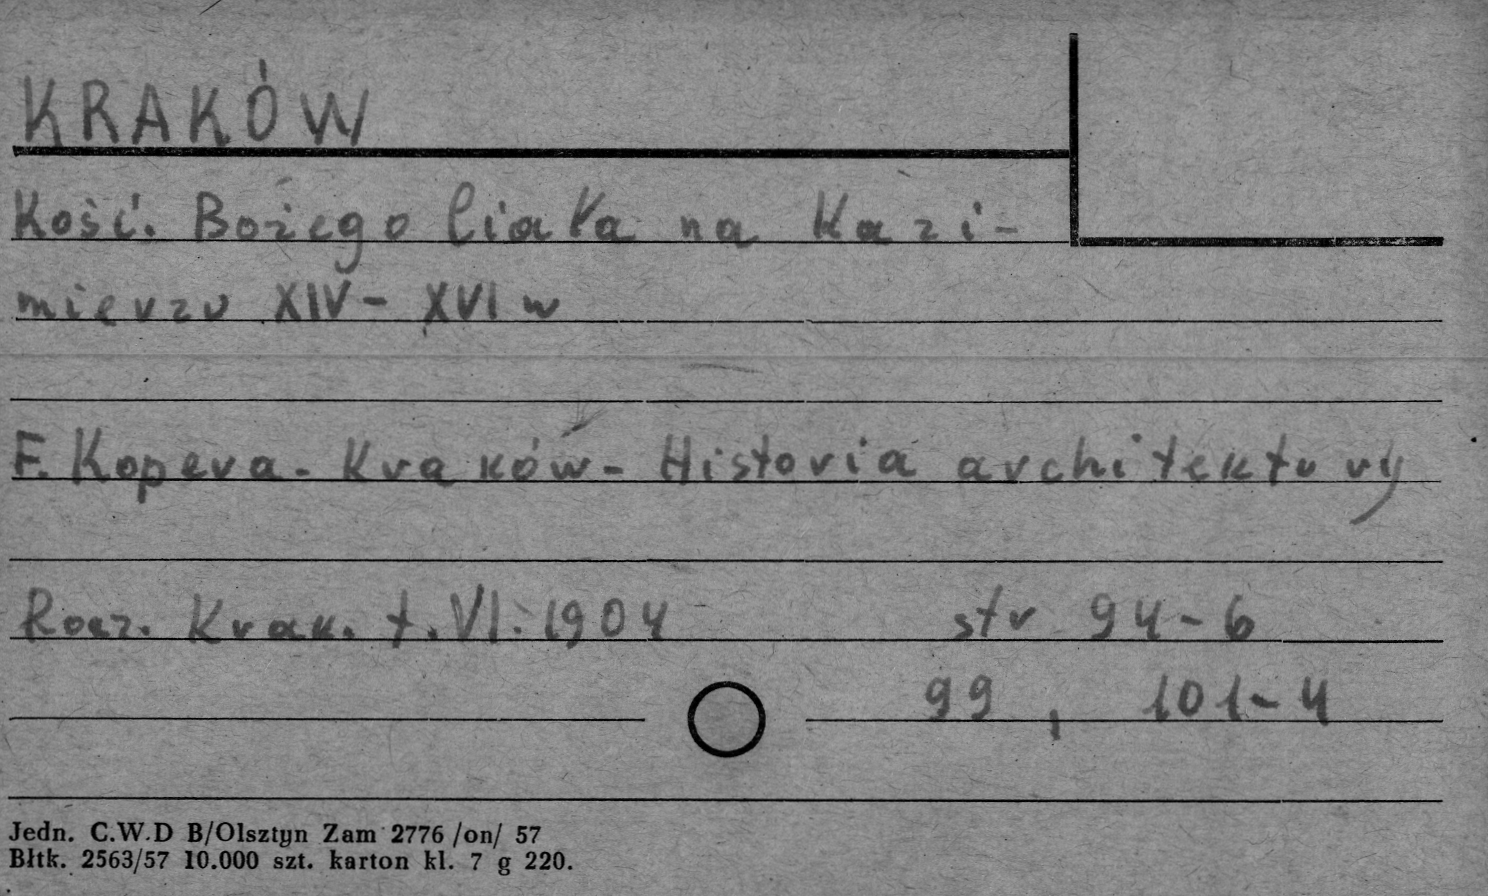 KRAKÓW
Kość. Bożego Ciała na Kazi-
mierzu XIV - XVI w
F. Kopera - Kraków - Historia architektury
Rocz. Krak. t. VI. 1904 str 94-6
99, 101-4
Jedn. C.W.D B/Olsztyn Zam 2776 /on/ 57
Błtk. 2563/57 10.000 szt. karton kl. 7 g 220.